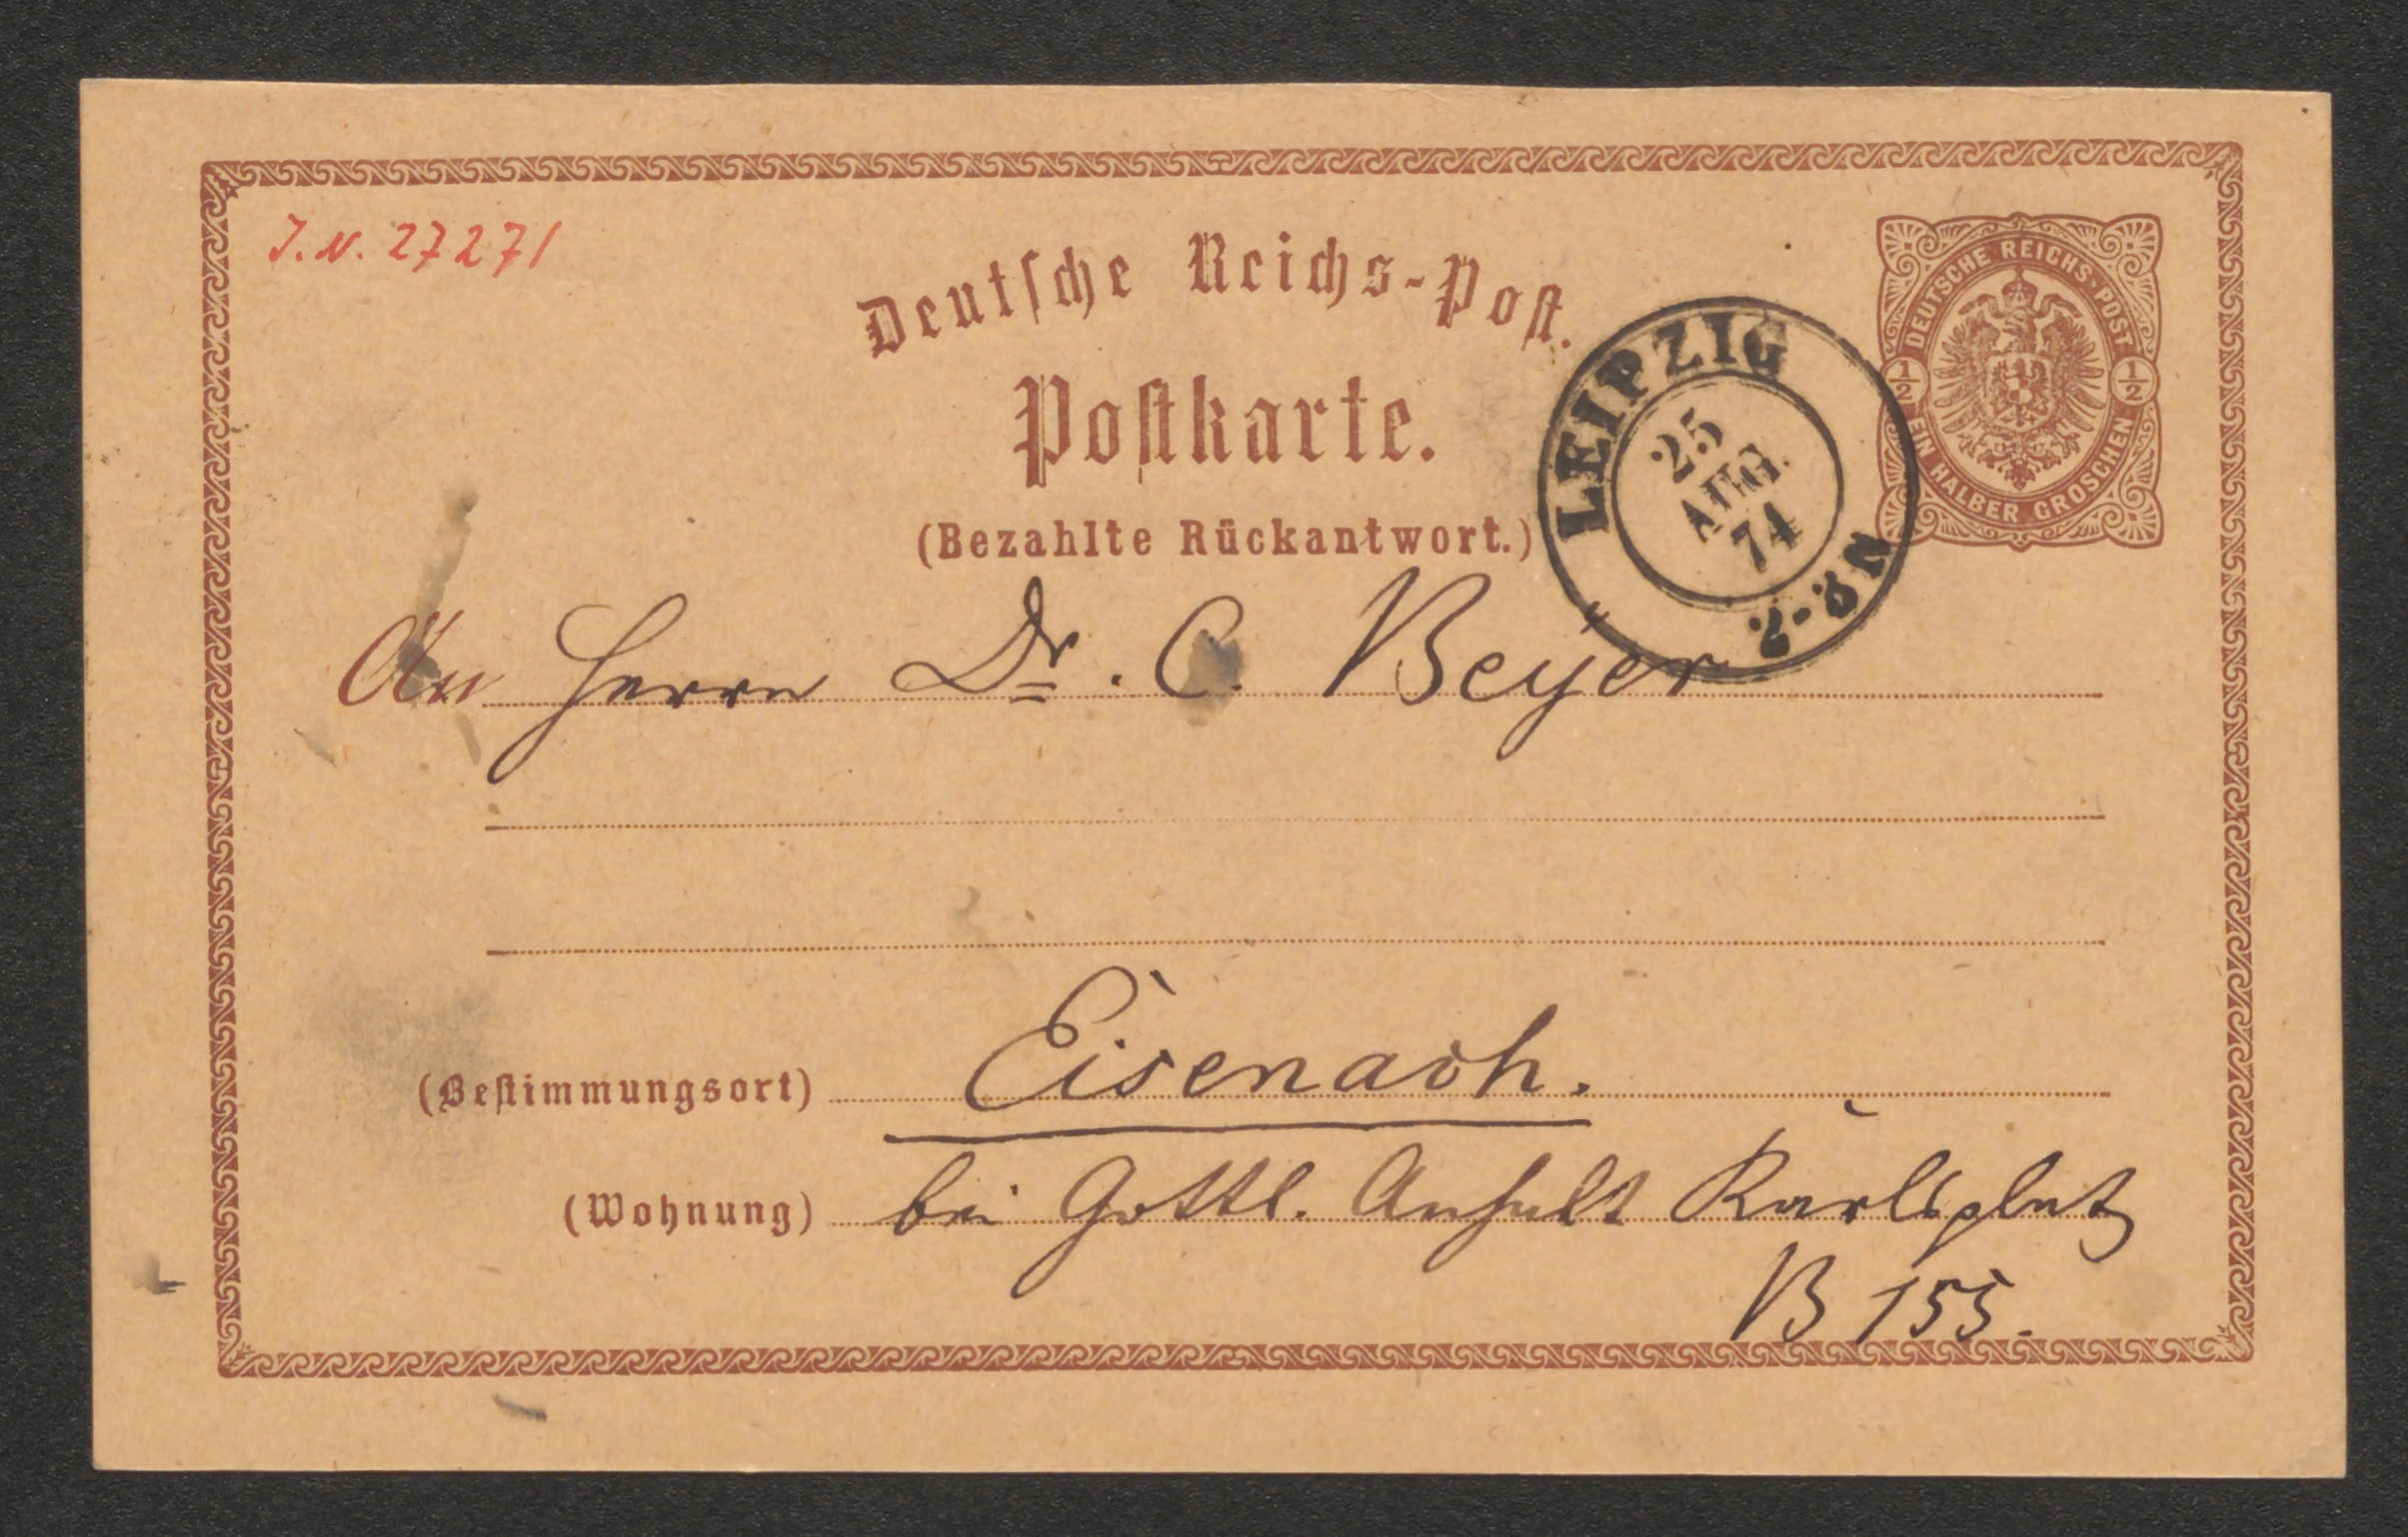 J.N. 27271
Deutsche Reichs-Post.
Postkarte.
(Bezahlte Rückantwort.)
DEUTSCHE REICHS-POST
½ ½
EIN HALBER GROSCHEN
LEIPZIG
25
AUG.
74
2-3 N
An Herrn Dr. C. Beyer
(Bestimmungsort) Eisenach.
(Wohnung) bei Gottl. Anhalt Karlsplatz
B 155.